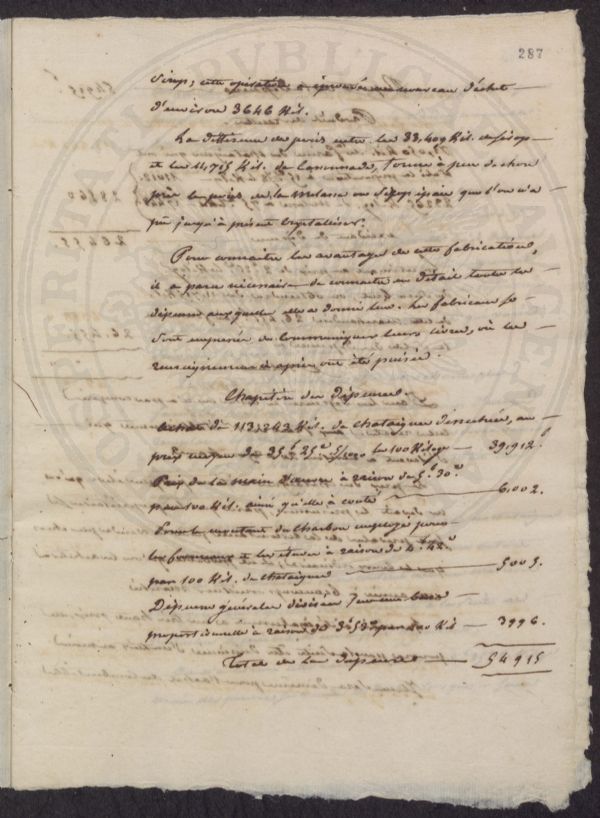 287
Sirop; cette opération a éprouvé un nouveau déchet
d'environ 3646 Kil.
La différence de poids entre les 33,409 Kil. de Sirop
et les 14755 Kil. de Cassonade, forme à peu de chose
près le poids de la Melasse ou Sirop épais que l'on n'a
pû jusqu'à présent Crystalliser.
Pour connaitre les avantages de cette fabrication,
il a paru nécessaire de connaitre en détail toutes les
dépenses auxquelles elle a donné lieu. Les fabricans se
sont empressés de Communiquer leurs livres, où les
renseignemens ci après ont été puisés.
Chapitre des Dépenses.
Achat de 113,243 Kil. de chataignes desséchées, au
prix moyen de 35 f 25 c les 100 Kilog — 39,912 f
Prix de la main d'œuvre à raison de 5 f 30 c
par 100 Kil. ainsi qu'elle a couté — 6,002.
Pour le montant du Charbon employé pour
les fourneaux et les étuves à raison de 4 f 42 c
par 100 Kil. de chataignes — 5005.
Dépenses générales divisées sur une base
proportionnelle à raison de 3 f 53 c par 100 Kil — 3996.
Total de la dépense — 54915